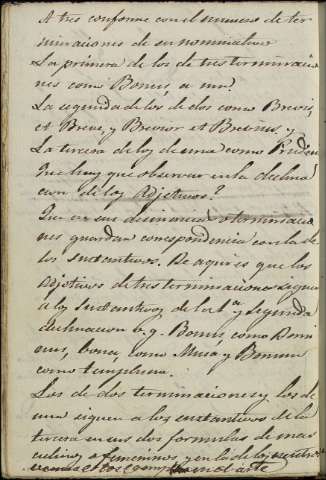 A tres conforme con el numero de ter
minaciones de su nominativo
La primera de los de tres terminacio
nes como Bonus, a um?
La segunda de los de dos como Brevis,
et Breve, y Brevior et Brevius, y
La tercera de los de una como Pruden
Que hay que observar en la declina
cion de los Adjetivos?
Que en sus desinencias o terminacio
nes guardan correspondencia con la de
los sustantivos. De aqui es que los
Adjetivos de tres terminaciones siguen
a los sustantivos de la 1.ª y segunda
declinacion v. g. Bonus, como Domi
nus, bona, como Musa y Bonum
como templum.
Los de dos terminaciones y los de
una siguen a los sustantivos de la
tercera en sus dos formulas de mas
culinos o femeninos, y en la de los neutros